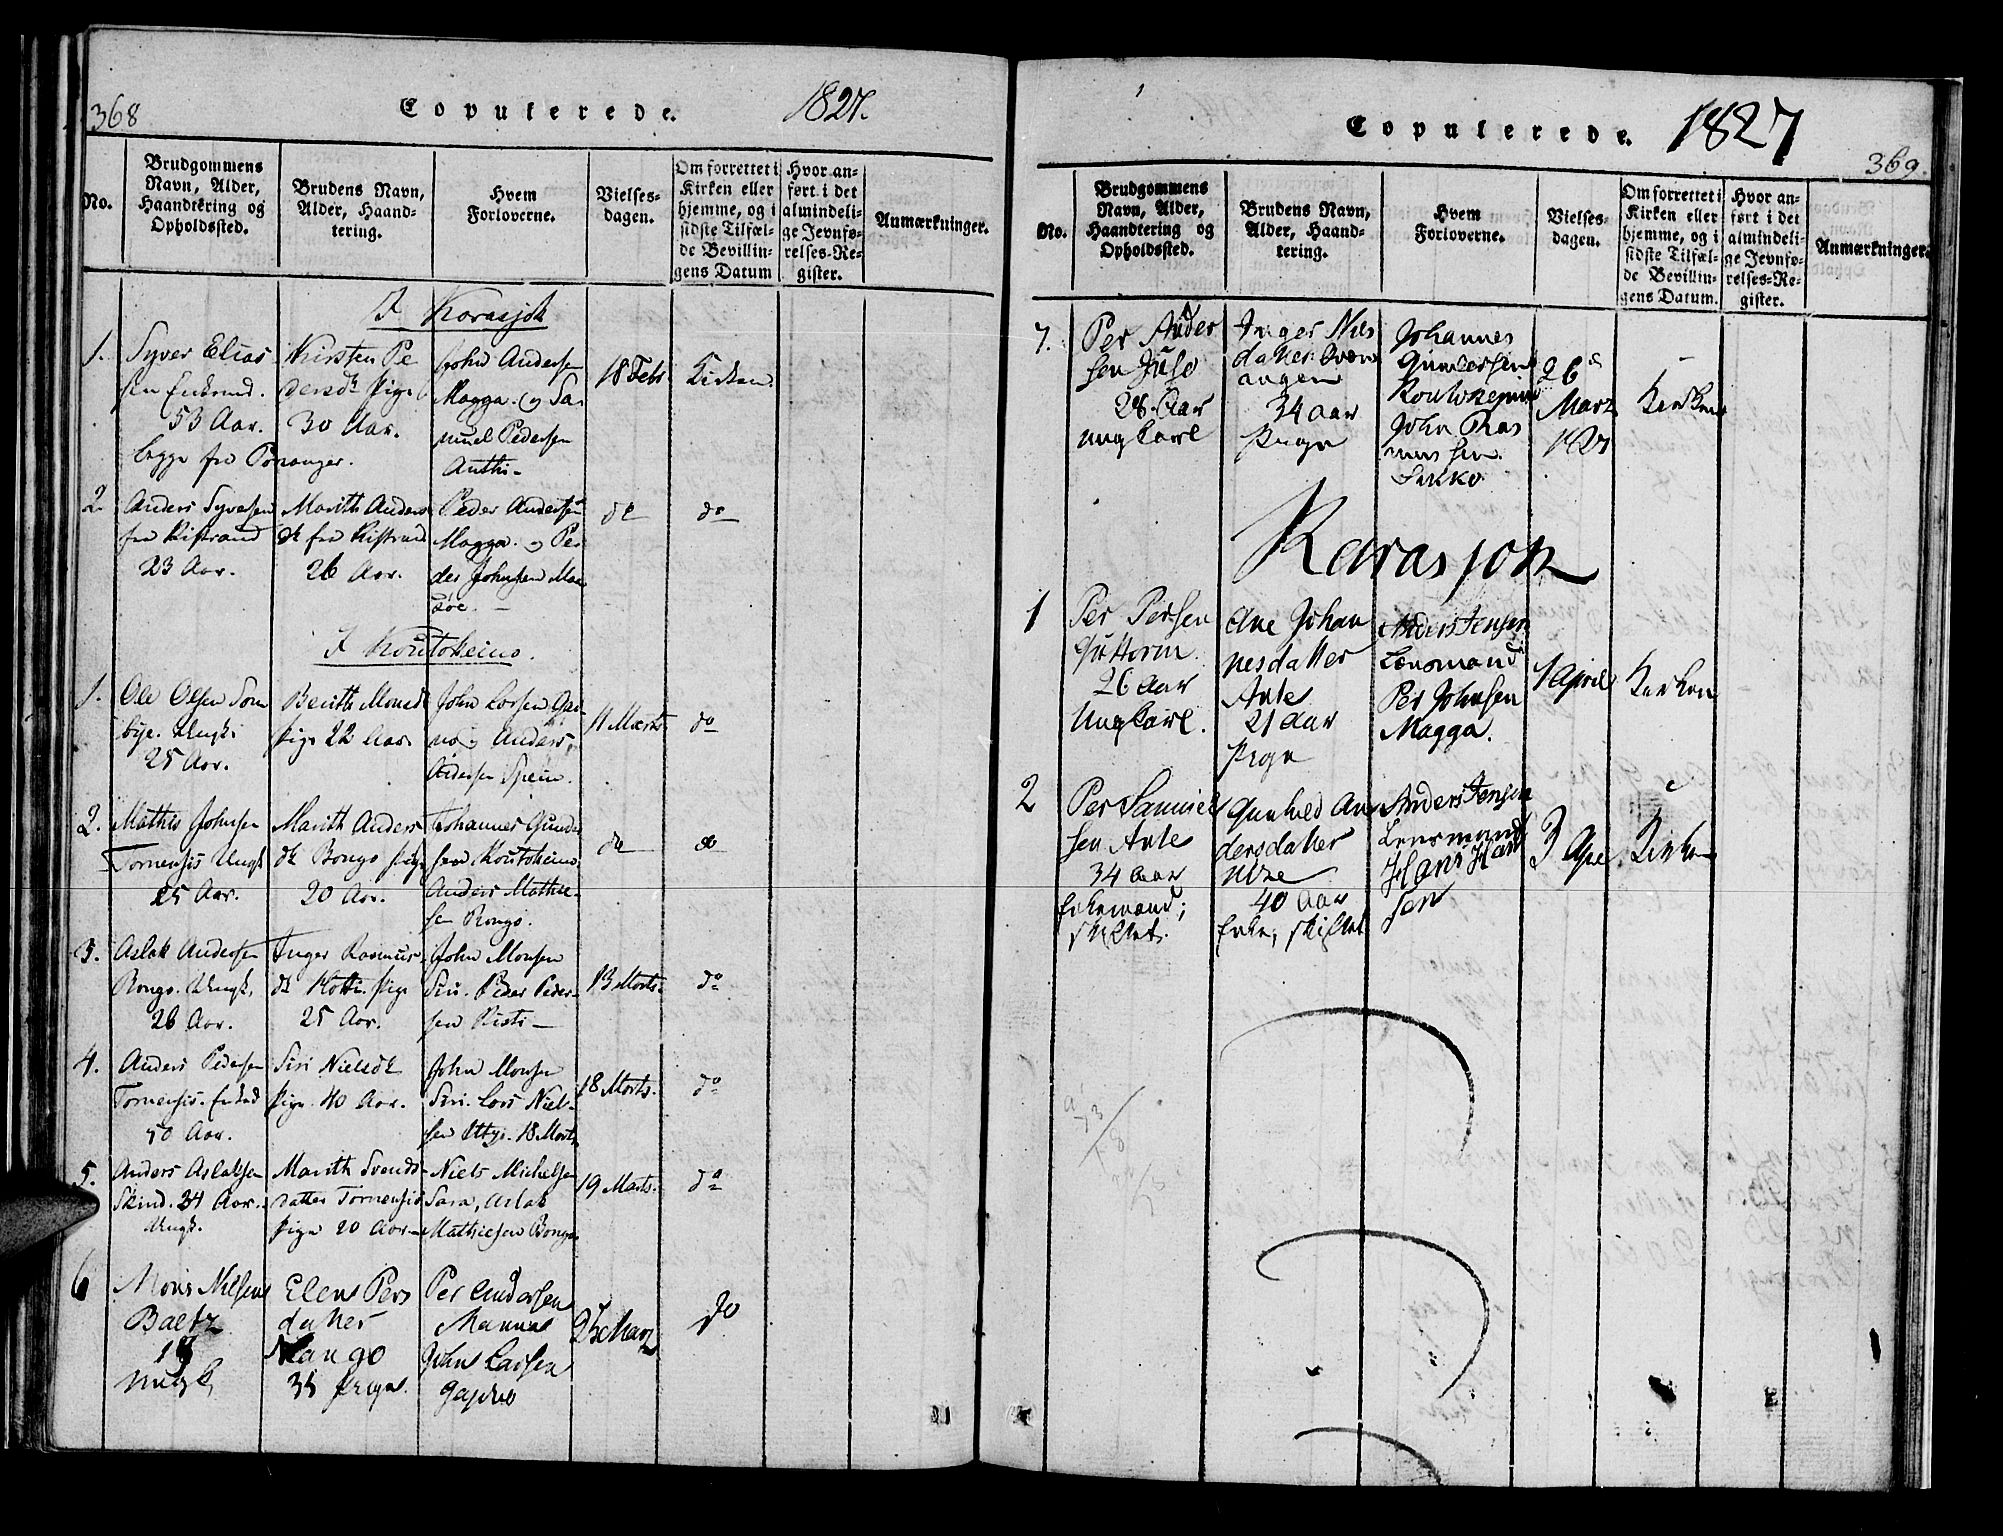 368
Copulerede.
1827.
No.
Brudgommens
Navn, Alder,
Haandtering og
Opholdssted.
Brudens Navn,
Alder, Haand-
tering.
Hvem
Forloverne.
Vielses-
dagen.
Om forrettet i
Kirken eller
hjemme, og i
sidste Tilfæl-
de Bevillin-
gens Datum
Hvor an-
ført i det
almindeli-
ge Jevnfø-
relses-Re-
gister.
Anmærkninger.
I Korasjok
1.
Syver Elias
sen Enkmd.
53 Aar.
Lagge fra Poranger.
Kirsten Pe
dersdr Pige
30 Aar.
John Andersen
Magga. og Sa-
muel Pedersen
Anthi-
18 Febr.
Kirken.
2.
Anders Syversen
fra Kistrand
23 Aar.
Marith Anders
dr fra Kistrand
26 Aar.
Peder Andersen
Magga. og Pe-
der Johnsen Ma-
do
do
I Koutokeino.
1.
Ole Olsen Som
bye. Ungk.
25 Aar.
Berith Monsdr
Pige 22 Aar
John Larsen Gav
no og Anders
Andersen Spein.
11 Marts.
do
2.
Mathis Johnsen
Tornensis Ungk
25 Aar.
Marith Anders
dr Bongo Pige
20 Aar.
Johannes Gunder
sen Koutokeino
Anders Mathie-
sen Bongo.
do
do
3.
Aslak Andersen
Bongo. Ungk.
26 Aar.
Inger Rasmus-
dr Kotte. Pige
25 Aar.
John Monsen
Siri. Peder Peder-
sen Risti-
13 Marts.
do
4.
Anders Pedersen
Tornensis. Enkmd
50 Aar.
Siri Nielsdr
Pige. 40 Aar.
John Monsen
Siri. Lars Niel-
sen Uttje. 18 Marts
18 Marts.
do
5.
Anders Aslaksen
Skind. 34 Aar.
Ungk.
Marith Svends-
datter Tornensis
Pige 20 Aar.
Niels Michelsen
Sara, Aslak
Mathiesen Bongo
19 Marts.
do
6
Mons Nilsen
Baeltz
Ungk
Elen Pers
datter
Nango
35 Pige.
Per Andersen
Mannas
John Larsen
25 Marz
do
Copulerede.
1827
369.
No.
Brudgommens
Navn, Alder,
Haandtering og
Opholdssted.
Brudens Navn,
Alder, Haand-
tering.
Hvem
Forloverne.
Vielses-
dagen.
Om forrettet i
Kirken eller
hjemme, og i
sidste Tilfæl-
de Bevillin-
gens Datum.
Hvor an-
ført i det
almindeli-
ge Jevnfø-
relses-Re-
gister.
Anmærkninger.
7.
Per Ander
sen Juso
28. Aar
ung Karl
Inger Nils
datter Kvæn
angen
34 Aar
Pige
Johannes
Gundersen
Koutokeino
John Ras
mussen
Sikko
26
Marz
1827
Kirken
Karasjok
1
Per Persen
Guttorm
26 Aar
Ungkarl.
Ane Johan
nesdatter
Ante
21 Aar
Pige
Anders Jensen
Lensmand
Per Johnsen
Magga.
1 April
Kirken
2
Per Samuel
sen Ante
34 Aar
Enkemand;
skiftet.
Gunhild An
dersdatter
40 Aar
Enke, skiftet
Anders Jensen
Lensmand
Hans Han
sen
3 Apr.
Kirken